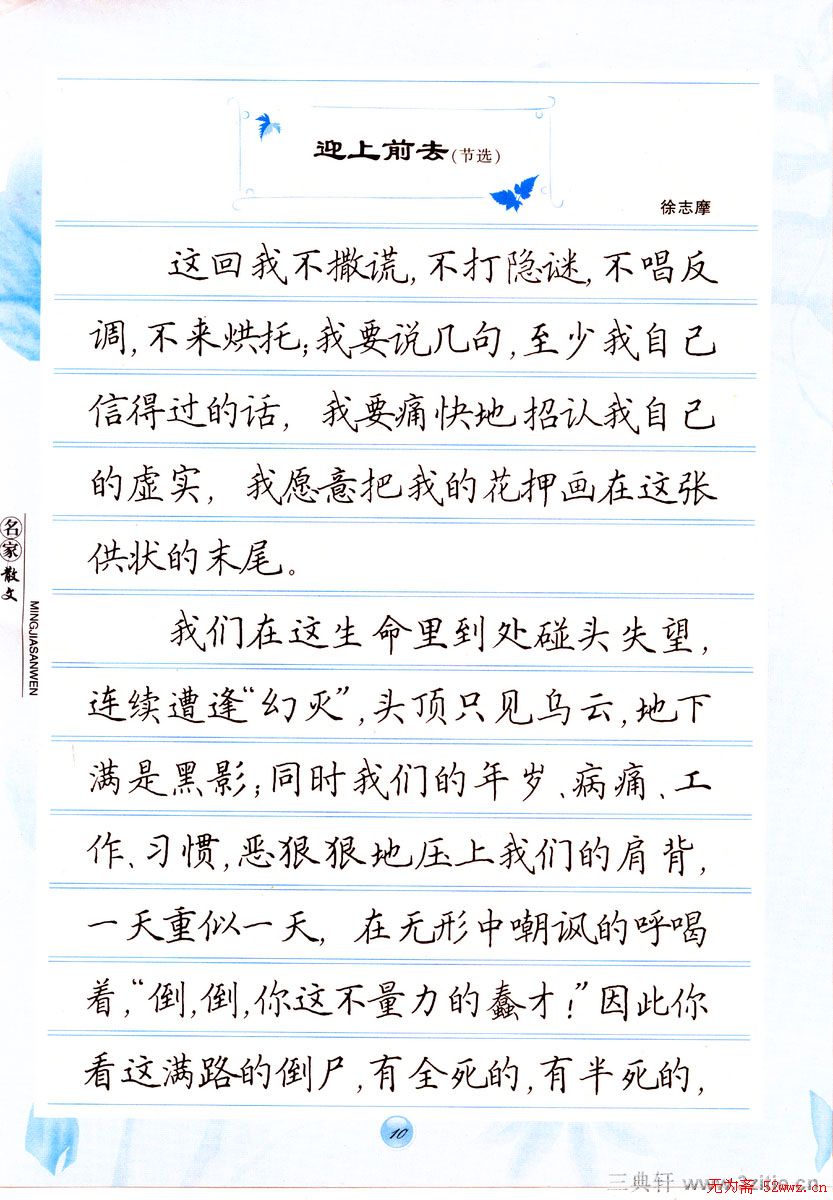 迎上前去(节选)
徐志摩
这回我不撒谎,不打隐谜,不唱反
调,不来烘托;我要说几句,至少我自己
信得过的话,我要痛快地招认我自己
的虚实,我愿意把我的花押画在这张
供状的末尾。
我们在这生命里到处碰头失望,
连续遭逢“幻灭”,头顶只见乌云,地下
满是黑影;同时我们的年岁、病痛、工
作、习惯,恶狠狠地压上我们的肩背,
一天重似一天,在无形中嘲讽的呼喝
着,“倒,倒,你这不量力的蠢才!”因此你
看这满路的倒尸,有全死的,有半死的,
名家散文
MINGJIASANWEN
10
三典轩 www.3zitie.cn
无为斋 52wwz.cn